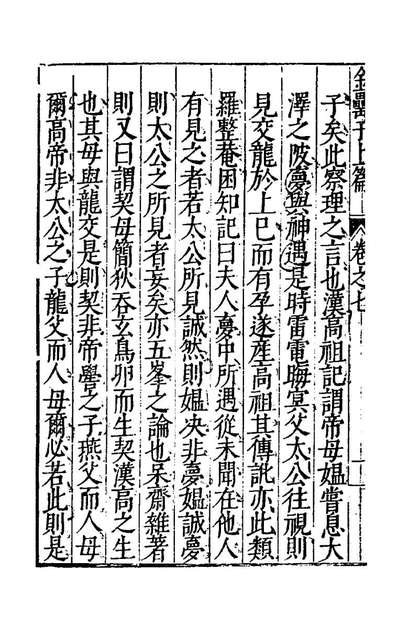 金罍子上篇 卷之七
子矣此察理之言也漢高祖記謂帝母媪嘗息大
澤之陂夢與神遇是時雷電晦冥父太公往視則
見交龍於上已而有孕遂産高祖其傳訛亦此類
羅整菴困知記曰夫人夢中所遇從未聞在他人
有見之者若太公所見誠然則媪決非夢媪誠夢
則太公之所見者妄矣亦五峯之論也呆齋雜著
則又曰謂契母簡狄吞玄鳥卵而生契漢高之生
也其母與龍交是則契非帝嚳之子燕父而人母
爾高帝非太公之子龍父而人母爾必若此則是